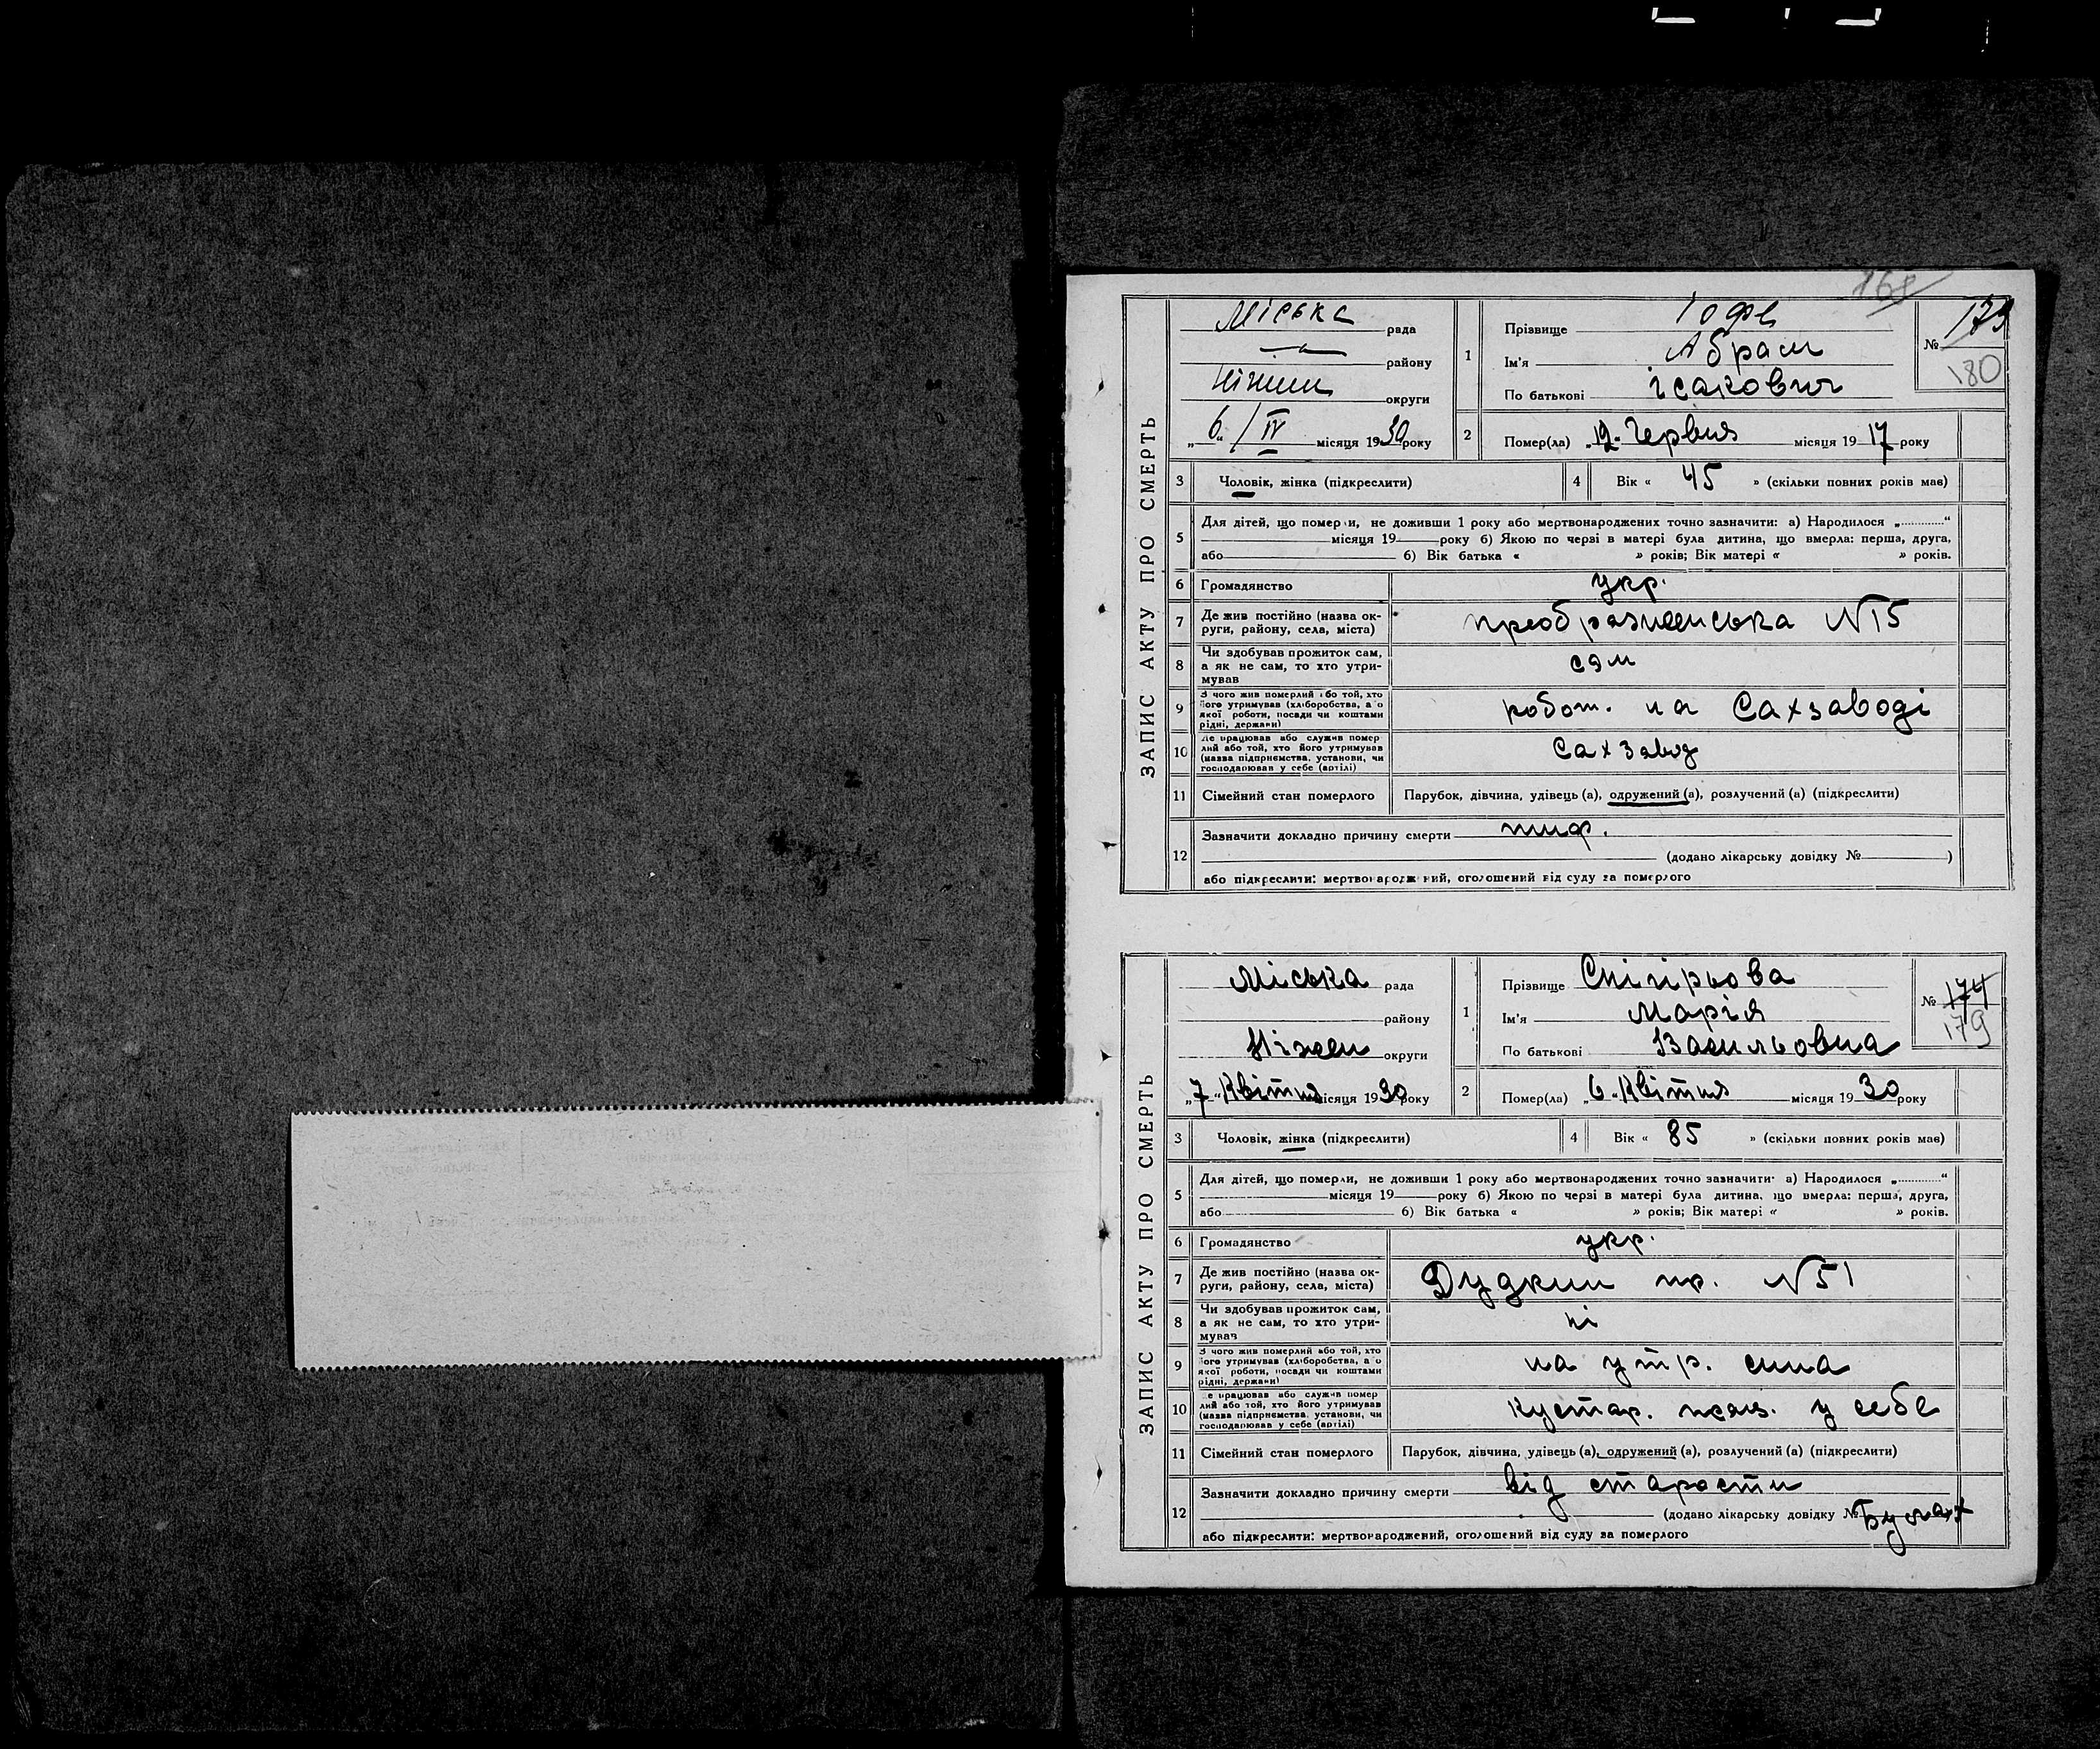 ЗАПИС АКТУ ПРО СМЕРТЬ
Міська рада
району
Ніжин округи
„6“ / IV місяця 1930 року
1
Прізвище Іофе
Ім'я Абрам
По батькові Ісакович
№ 173
180
2
Помер(ла) „12“ Червня місяця 1917 року
3 Чоловік, жінка (підкреслити)
4 Вік « 45 » (скільки повних років має)
5
Для дітей, що померли, не доживши 1 року або мертвонароджених точно зазначити: а) Народилося „ “
місяця 19 року б) Якою по черзі в матері була дитина, що вмерла: перша, друга,
або б) Вік батька « » років; Вік матері « » років.
6 Громадянство укр.
7 Де жив постійно (назва ок-
руги, району, села, міста)
преображенська №15
8 Чи здобував прожиток сам,
а як не сам, то хто утри-
мував
сам
9 З чого жив померлий або той, хто
його утримував (хліборобства, або
якої роботи, посади чи коштами
рідні, держави)
робот. на Сахзаводі
10 Де працював або служив помер
лий або той, хто його утримував
(назва підприємства, установи, чи
господарював у себе (артілі)
Сахзавод
11 Сімейний стан померлого Парубок, дівчина, удівець (а), одружений (а), розлучений (а) (підкреслити)
12
Зазначити докладно причину смерти тиф.
(додано лікарську довідку № )
або підкреслити: мертвонароджений, оголошений від суду за померлого
ЗАПИС АКТУ ПРО СМЕРТЬ
Міська рада
району
Ніжен округи
„7“ Квітня місяця 1930 року
1
Прізвище Снігірьова
Ім'я Марія
По батькові Васильовна
№ 174
179
2
Помер(ла) „6“ Квітня місяця 1930 року
3 Чоловік, жінка (підкреслити)
4 Вік « 85 » (скільки повних років має)
5
Для дітей, що померли, не доживши 1 року або мертвонароджених точно зазначити: а) Народилося „ “
місяця 19 року б) Якою по черзі в матері була дитина, що вмерла: перша, друга,
або б) Вік батька « » років; Вік матері « » років.
6 Громадянство укр.
7 Де жив постійно (назва ок-
руги, району, села, міста)
Дудкин пр. №51
8 Чи здобував прожиток сам,
а як не сам, то хто утри-
мував
ні
9 З чого жив померлий або той, хто
його утримував (хліборобства, або
якої роботи, посади чи коштами
рідні, держави)
на утр. сина
10 Де працював або служив помер
лий або той, хто його утримував
(назва підприємства, установи, чи
господарював у себе (артілі)
кустар. у себе
11 Сімейний стан померлого Парубок, дівчина, удівець (а), одружений (а), розлучений (а) (підкреслити)
12
Зазначити докладно причину смерти від старости
(додано лікарську довідку №
або підкреслити: мертвонароджений, оголошений від суду за померлого